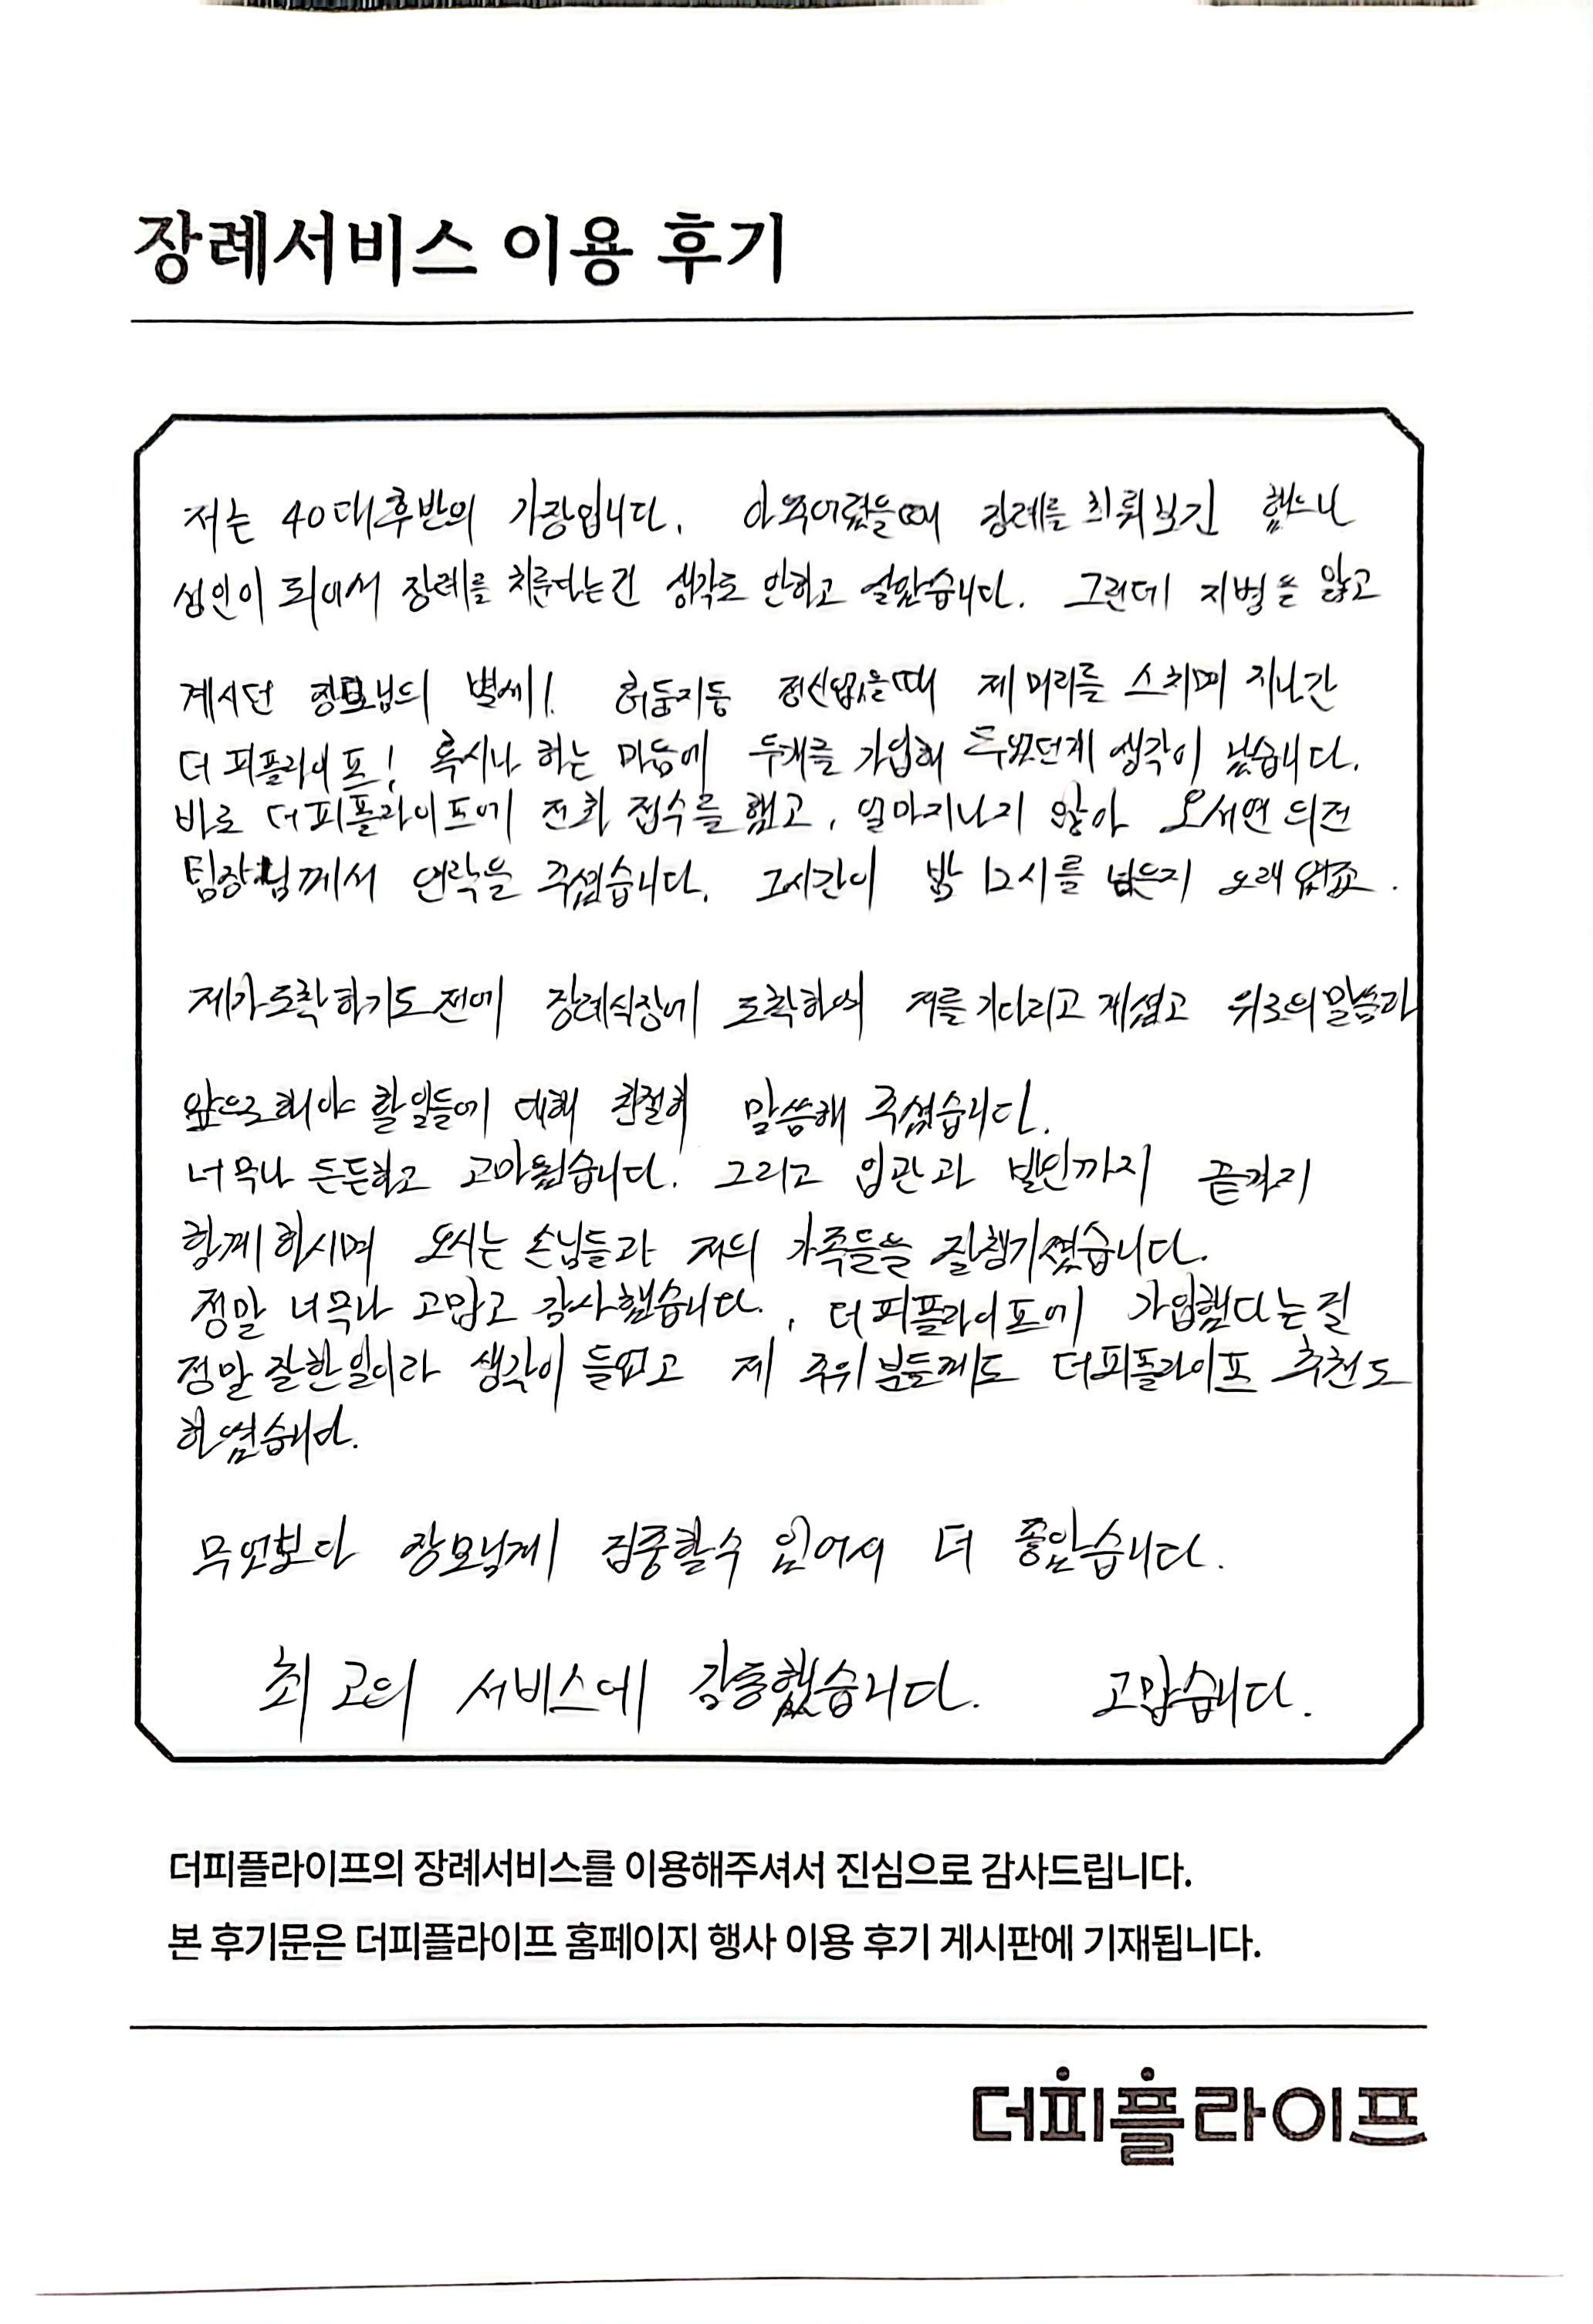 장례서비스 이용 후기
저는 40대후반의 가장입니다. 아주어렸을때 장례를 치뤄보긴 했으나
성인이 되어서 장례를 치룬다는건 생각도 안하고 살았습니다. 그런데 지병을 앓고
계시던 장모님의 별세! 허둥지둥 정신없을때 제 머리를 스치며 지나간
더피플라이프! 혹시나 하는 마음에 두개를 가입해 두었던게 생각이 났습니다.
바로 더피플라이프에 전화 접수를 했고, 얼마지나지 않아 오세연 의전
팀장님께서 연락을 주셨습니다. 그시간이 밤 12시를 넘은지 오래 였죠.
제가도착하기도 전에 장례식장에 도착하여 저를 기다리고 계셨고 위로의말씀과
앞으로해야 할일들에 대해 친절히 말씀해 주셨습니다.
너무나 든든하고 고마웠습니다. 그리고 입관과 발인까지 끝까지
함께 하시며 오시는 손님들과 저의 가족들을 잘챙기셨습니다.
정말 너무나 고맙고 감사했습니다., 더피플라이프에 가입했다는걸
정말 잘한일이라 생각이 들었고 제 주위분들께도 더피플라이프 추천도
하였습니다.
무엇보다 장모님께 집중할수 있어서 더 좋았습니다.
최고의 서비스에 감동했습니다. 고맙습니다.
더피플라이프의 장례서비스를 이용해주셔서 진심으로 감사드립니다.
본 후기문은 더피플라이프 홈페이지 행사 이용 후기 게시판에 기재됩니다.
더피플라이프